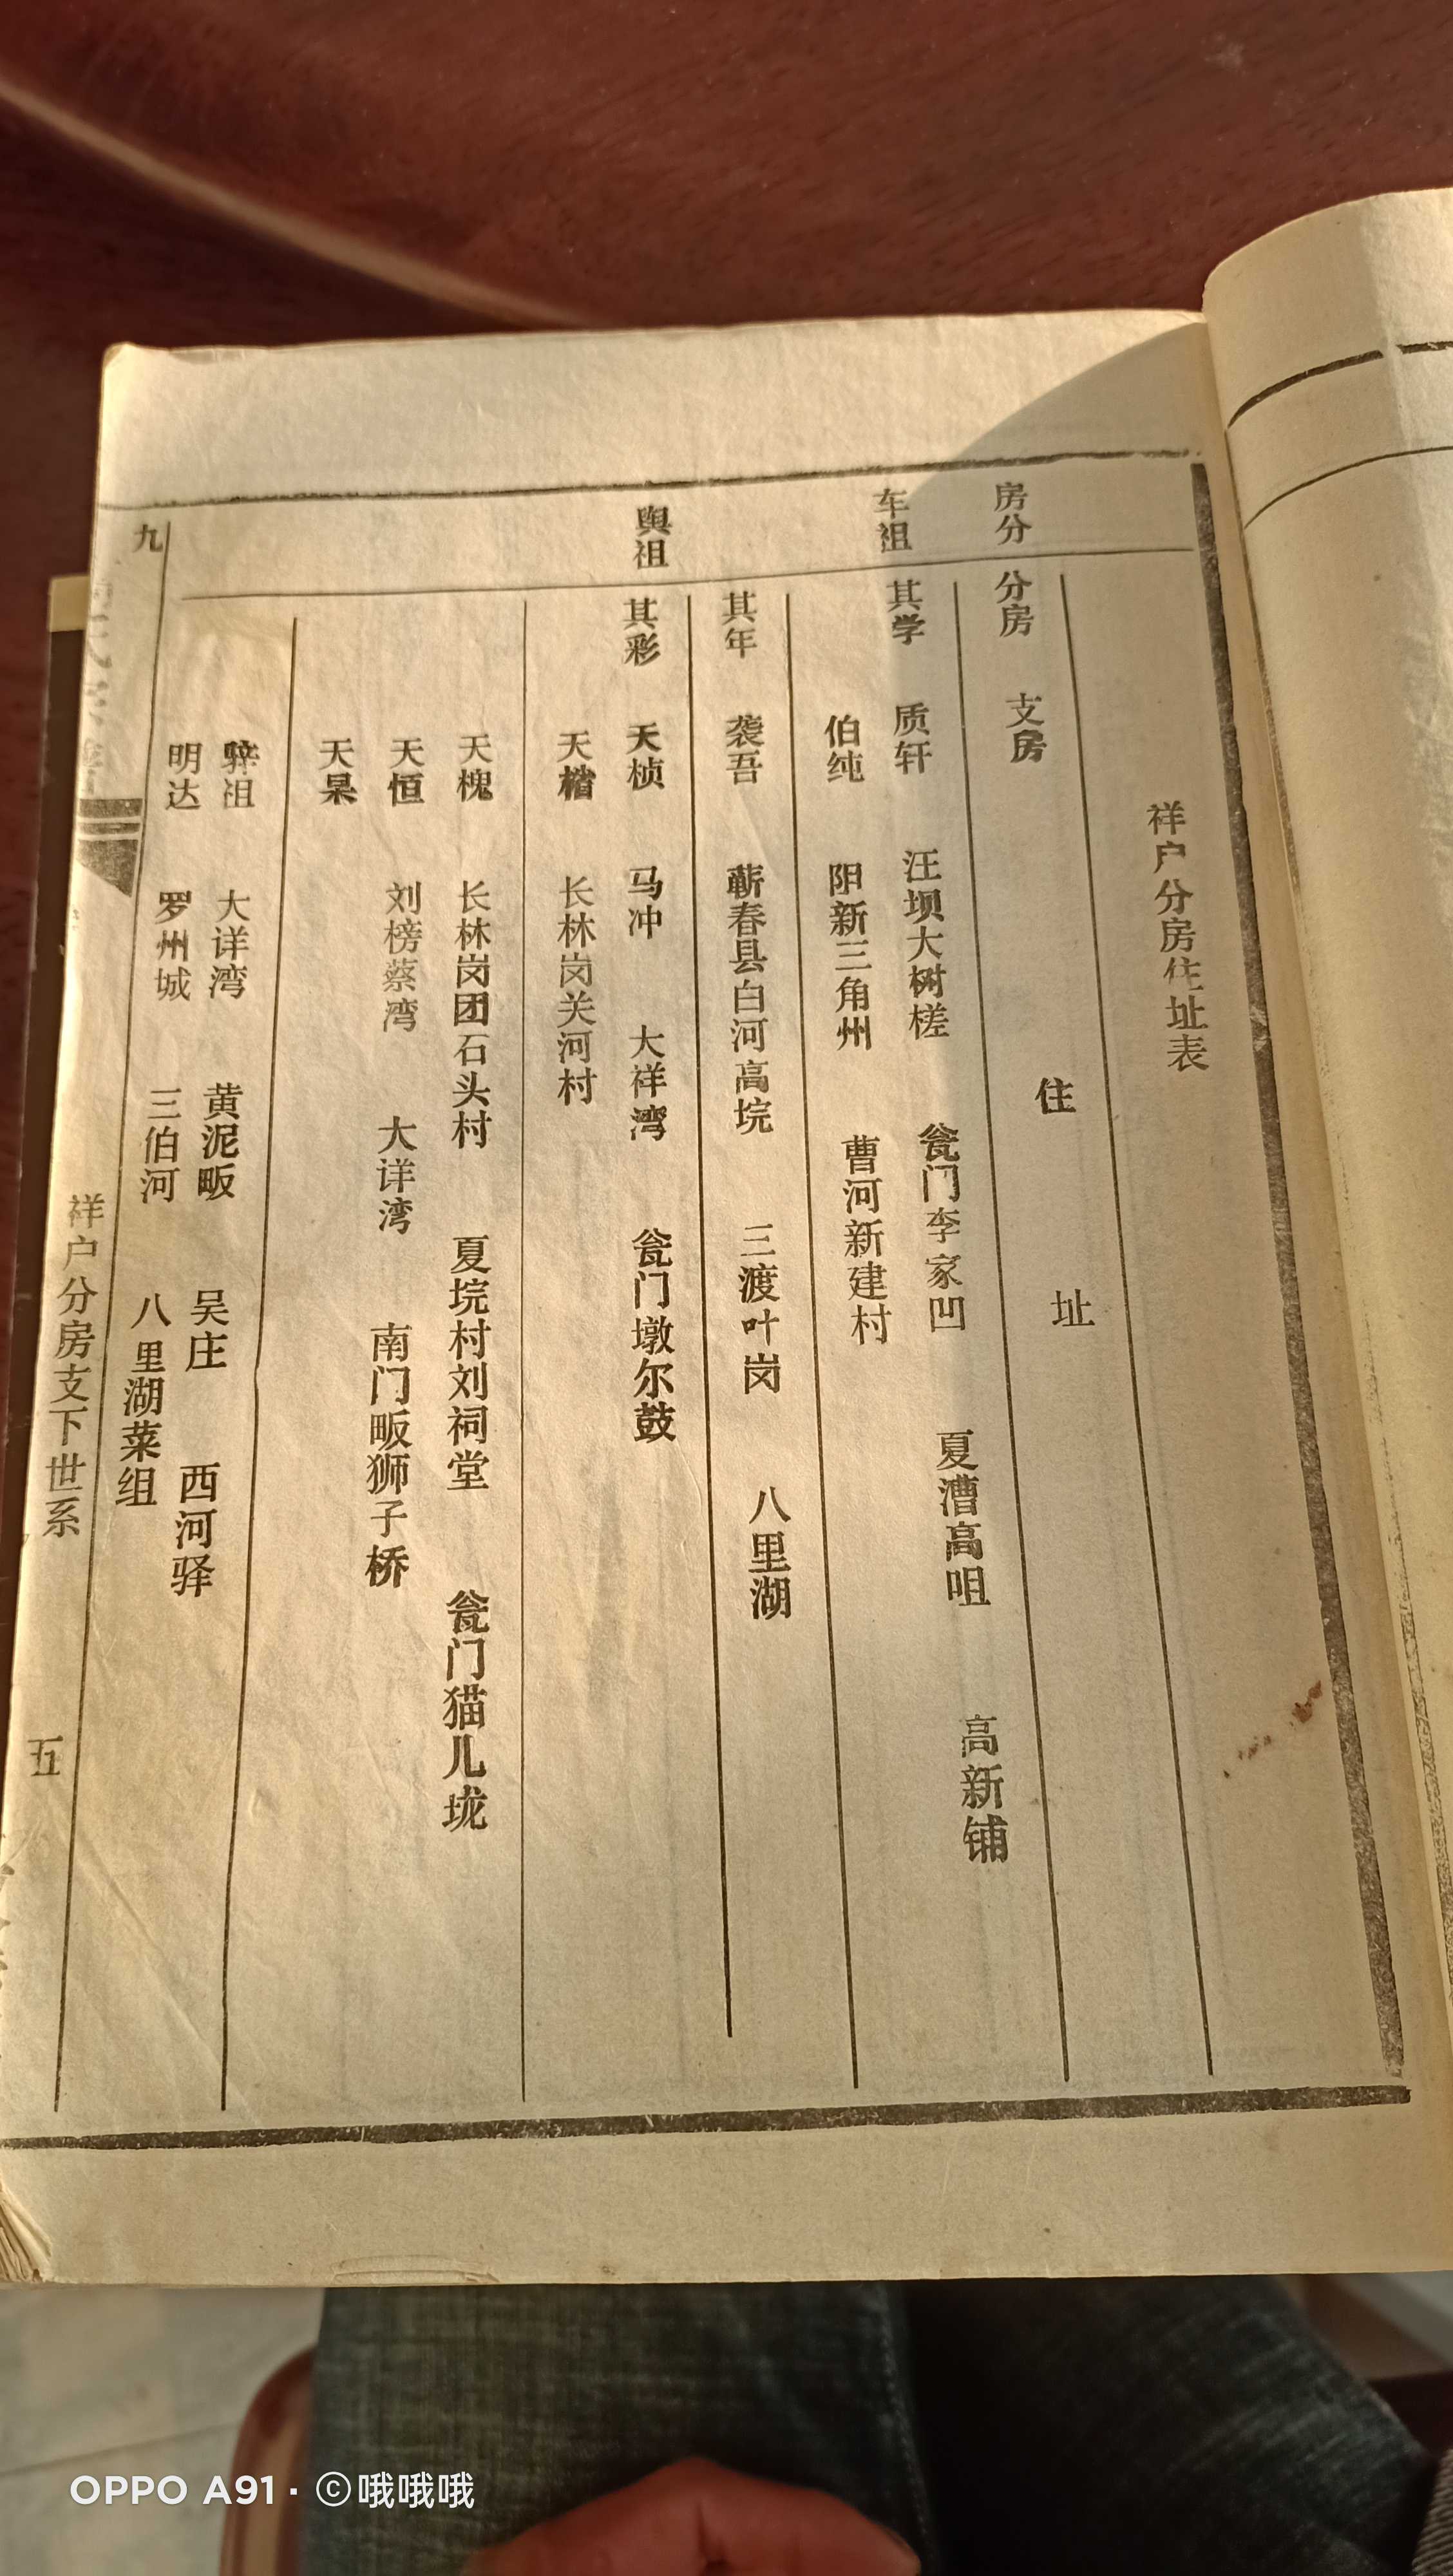 祥户分房住址表
房分 分房 支房 住 址
车祖 其学 质轩 汪坝大树槎 瓮门李家凹 夏漕高咀 高新铺
伯纯 阳新三角州 曹河新建村
其年 袭吾 蕲春县白河高垸 三渡叶岗 八里湖
舆祖 其彩 天桢 马冲 大祥湾 瓮门墩尔鼓
天楷 长林岗关河村
天槐 长林岗团石头村 夏垸村刘祠堂 瓮门猫儿垅
天恒 刘榜蔡湾 大详湾 南门畈狮子桥
天杲
骍祖 大详湾 黄泥畈 吴庄 西河驿
明达 罗州城 三伯河 八里湖菜组
九
祥户分房支下世系
五
OPPO A91 · ©哦哦哦